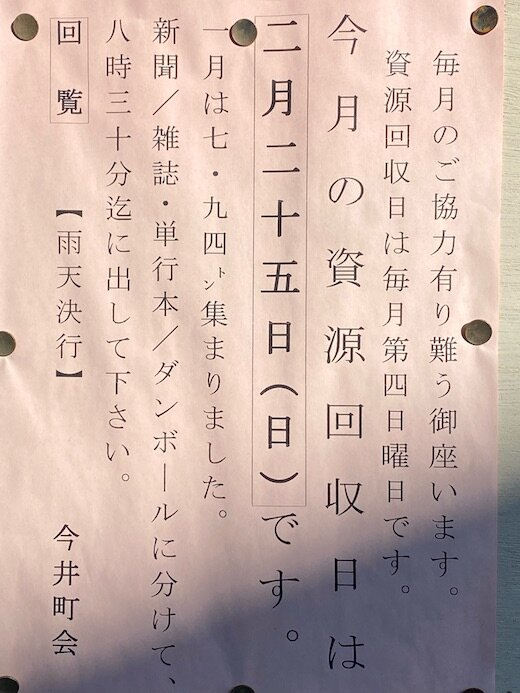 毎月のご協力有り難う御座います。
資源回収日は毎月第四日曜日です。
今月の資源回収日は
二月二十五日（日）です。
一月は七・九四㌧集まりました。
新聞／雑誌・単行本／ダンボールに分けて、
八時三十分迄に出して下さい。
回覧　【雨天決行】　今井町会